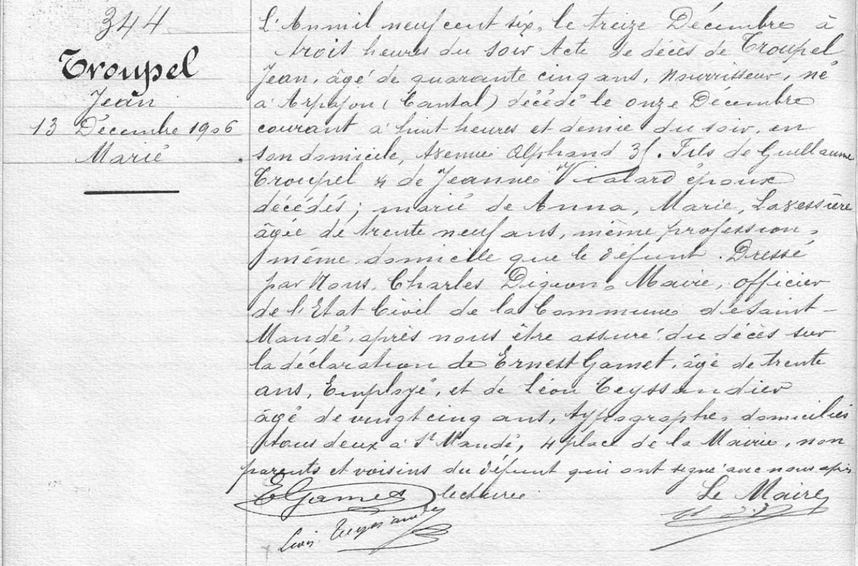 344
Troupel
Jean
13 Décembre 1906
Marié
L'An mil neuf cent six, le treize Décembre à
trois heures du soir Acte de décès de Troupel
Jean, âgé de quarante cinq ans, Nourrisseur, né
à Arpajon (Cantal) décédé le onze Décembre
courant à huit heures et demie du soir, en
son domicile, Avenue Alphand 35. Fils de Guillaume
Troupel & de Jeanne Vialard époux
décédés; marié de Anna, Marie, Lavessière
âgée de trente neuf ans, même profession,
même domicile que le défunt. Dressé
par Nous, Charles Digeon, Maire, officier
de l'Etat Civil de la Commune de Saint-
Mandé, après nous être assuré du décès sur
la déclaration de Ernest Gamet, âgé de trente
ans, Employé, et de Léon Teyssandier
âgé de vingt cinq ans, typographe, domiciliés
tous deux à St Mandé, 4 place de la Mairie, non
parents et voisins du défunt qui ont signé avec nous après
lecture.
EGamet
Le Maire
Léon Teyssandier